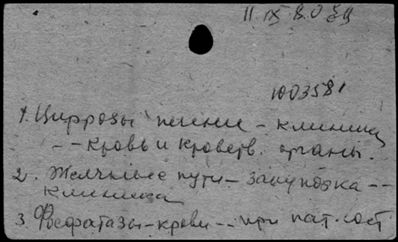 II. IX В.О
1003581
1. Циррозы печени - клиника
- - кровь и кроветв. органы.
2. Желчные пути - закупорка - -
клиника
3. Фосфатазы - крови - - при пат. сост.